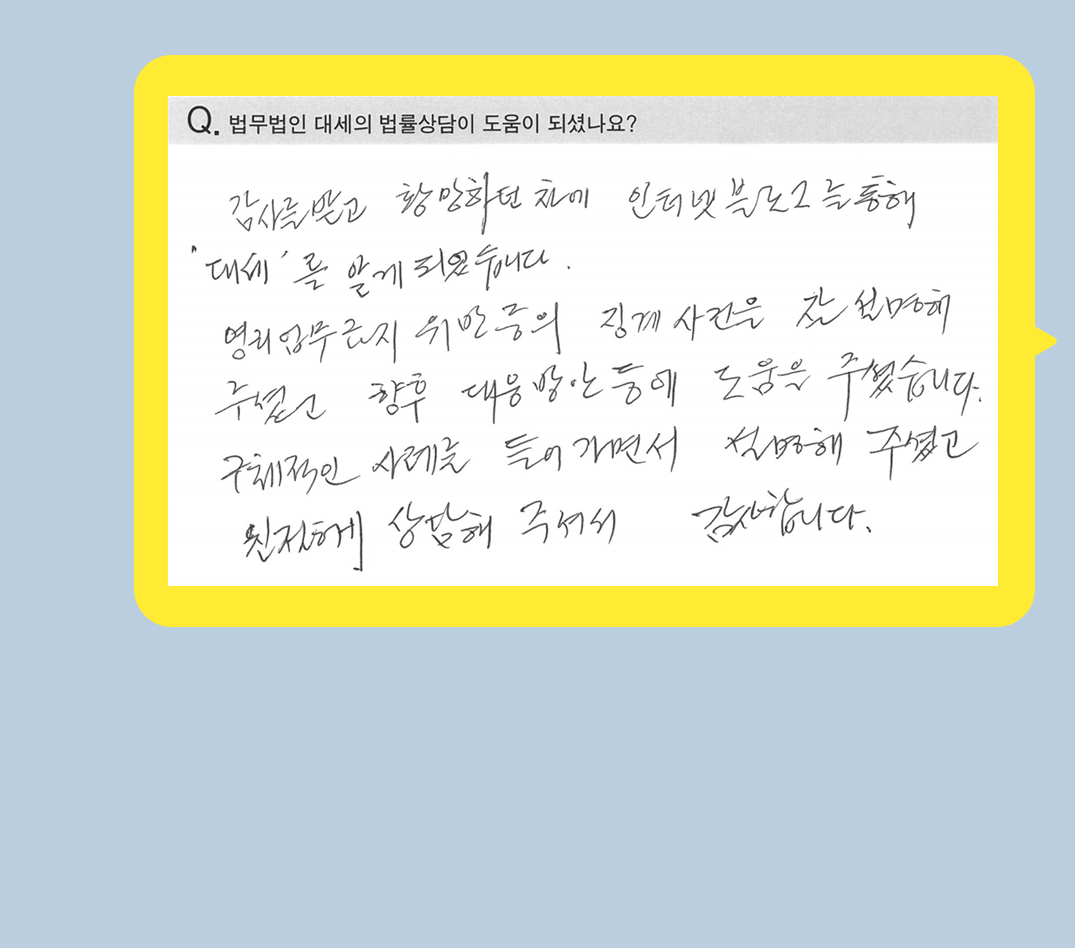 Q. 법무법인 대세의 법률상담이 도움이 되셨나요?
감사를 받고 황망하던 차에 인터넷 블로그를 통해
'대세'를 알게 되었습니다.
영리업무금지 위반 등의 징계사건을 잘 설명해
주셨고 향후 대응방안 등에 도움을 주셨습니다.
구체적인 사례를 들어가면서 설명해 주셨고
친절하게 상담해 주셔서 감사합니다.